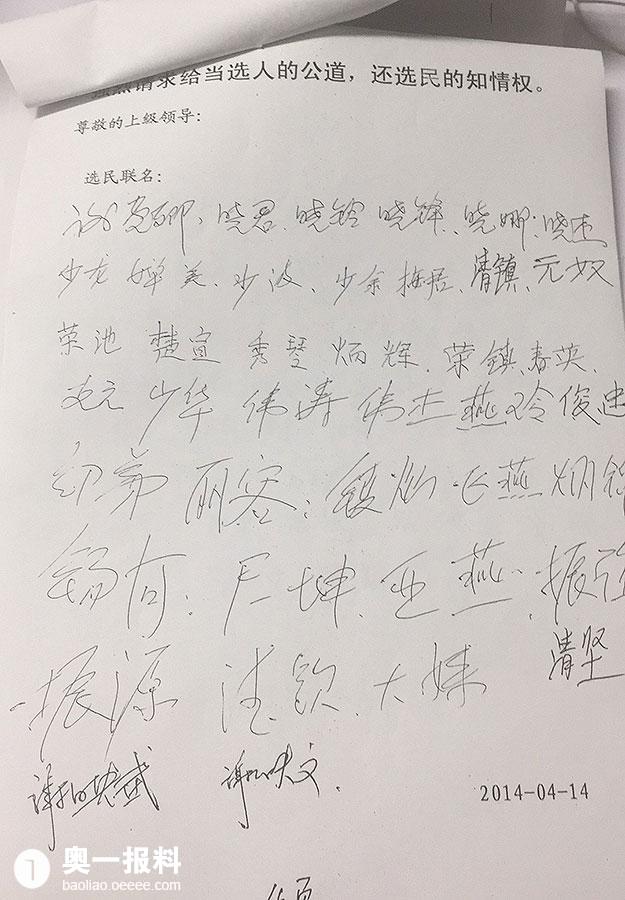 请求给当选人的公道，还选民的知情权。
尊敬的上级领导：
选民联名：
晓君、晓铃 晓锋、晓娜、晓杰
少龙 婵美、少波、少余 梅居、清镇、元奴
荣池 楚宣 秀琴 炳辉、荣镇、春英、
少华 伟涛 伟杰 燕玲 俊忠
幼弟 丽容； 飞燕 炳
锡有、 坤、亚燕、振强
振源 大妹 清坚
谢映文.
2014-04-14
奥一报料
baoliao.oeeee.com